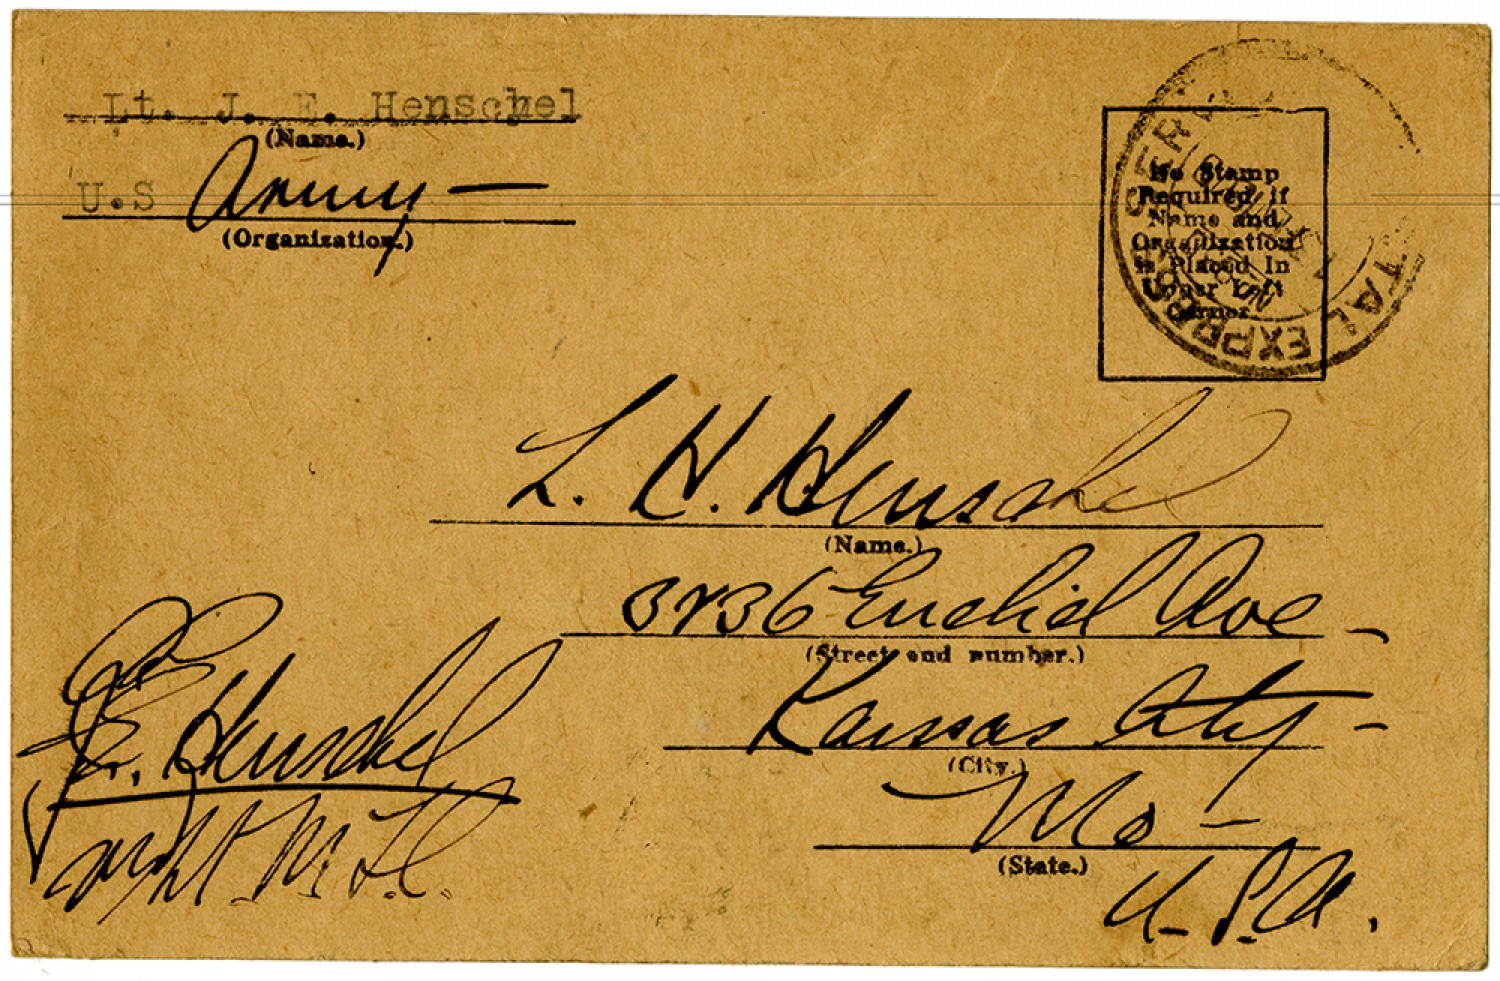 Lt. J. E. Henschel
(Name.)
U.S Army —
(Organization.)
No Stamp
Required if
Name and
Organization
is Placed In
Upper Left
Corner
EXPRESS SERV
L. H. Henschel
(Name.)
3236 Euclid Ave —
(Street and number.)
Kansas City —
(City.)
Mo —
(State.)
U.S.A.
E. Henschel
Lt.